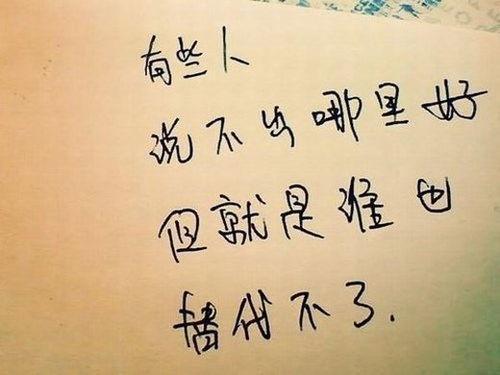 有些人
说不出哪里好
但就是谁也
替代不了.